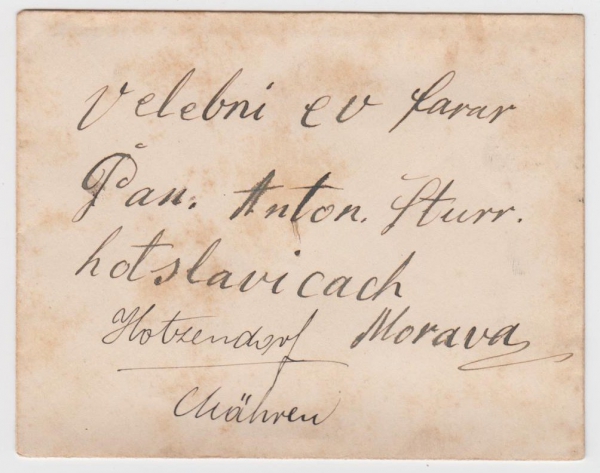 Velebni ev farar
Pan. Anton. Sturr.
hotslavicach
Hotzendorf Morava
Mähren